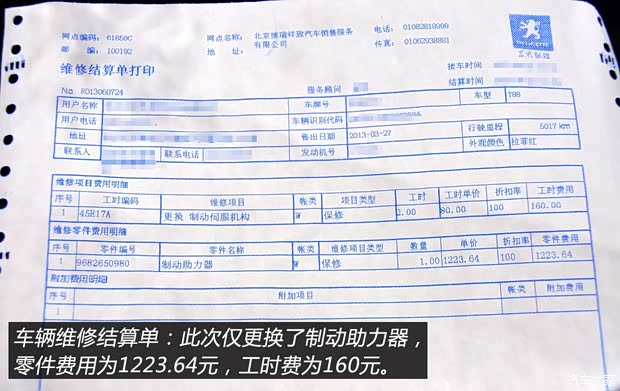 网点编号: 61850C 网点名称: 北京博瑞祥致汽车销售服务有限公司 电话: 01082818999
邮 编: 100192 地 址: 传真: 01062938881
东风标致
维修结算单打印 接车时间
No. R013060724 服务顾问 结算时间
用户名称 车牌号 车型 T88
用户电话 车辆识别代码
地址 售出日期 2013-03-27 行驶里程 5017 km
联系人 联系电话 发动机号 外观颜色 拉菲红
维修项目费用明细
序号 工时编码 维修项目 帐类 项目类型 工时 工时单价 折扣率 工时费用
1 45E17A 更换 制动伺服机构 W 保修 2.00 80.00 100 160.00
维修零件费用明细
序号 零件编号 零件名称 帐类 维修项目类型 数量 单价 折扣率 零件费用
1 9682650980 制动助力器 W 保修 1.00 1223.64 100 1223.64
附加费用明细
序号 附加项目 帐类 附加费用
1
车辆维修结算单：此次仅更换了制动助力器，
零件费用为1223.64元，工时费为160元。
汽车之家